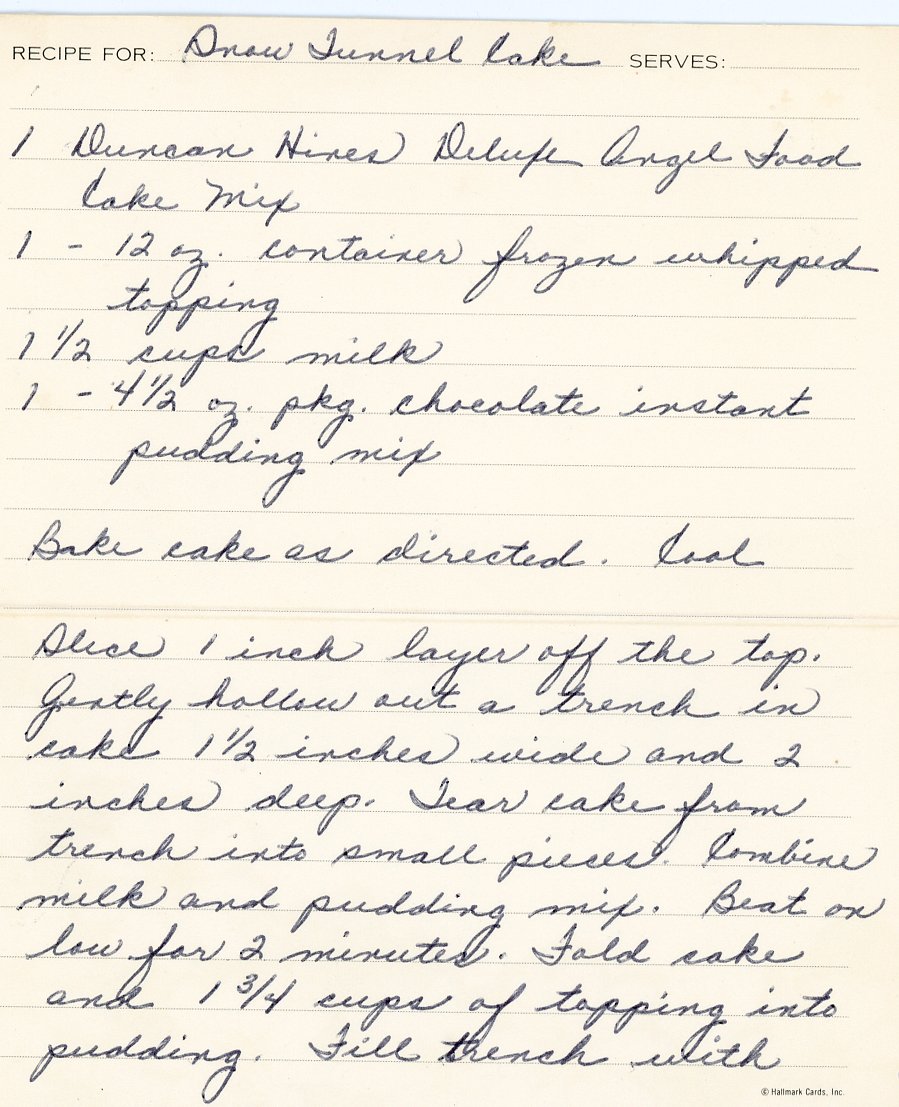 RECIPE FOR: Snow Tunnel Cake SERVES:
1 Duncan Hines Deluxe Angel Food
Cake Mix
1 - 12 oz. container frozen whipped
topping
1 1/2 cups milk
1 - 4 1/2 oz. pkg. chocolate instant
pudding mix
Bake cake as directed. Cool
Slice 1 inch layer off the top.
Gently hollow out a trench in
cake 1 1/2 inches wide and 2
inches deep. Tear cake from
trench into small pieces. Combine
milk and pudding mix. Beat on
low for 2 minutes. Fold cake
and 1 3/4 cups of topping into
pudding. Fill trench with
© Hallmark Cards, Inc.